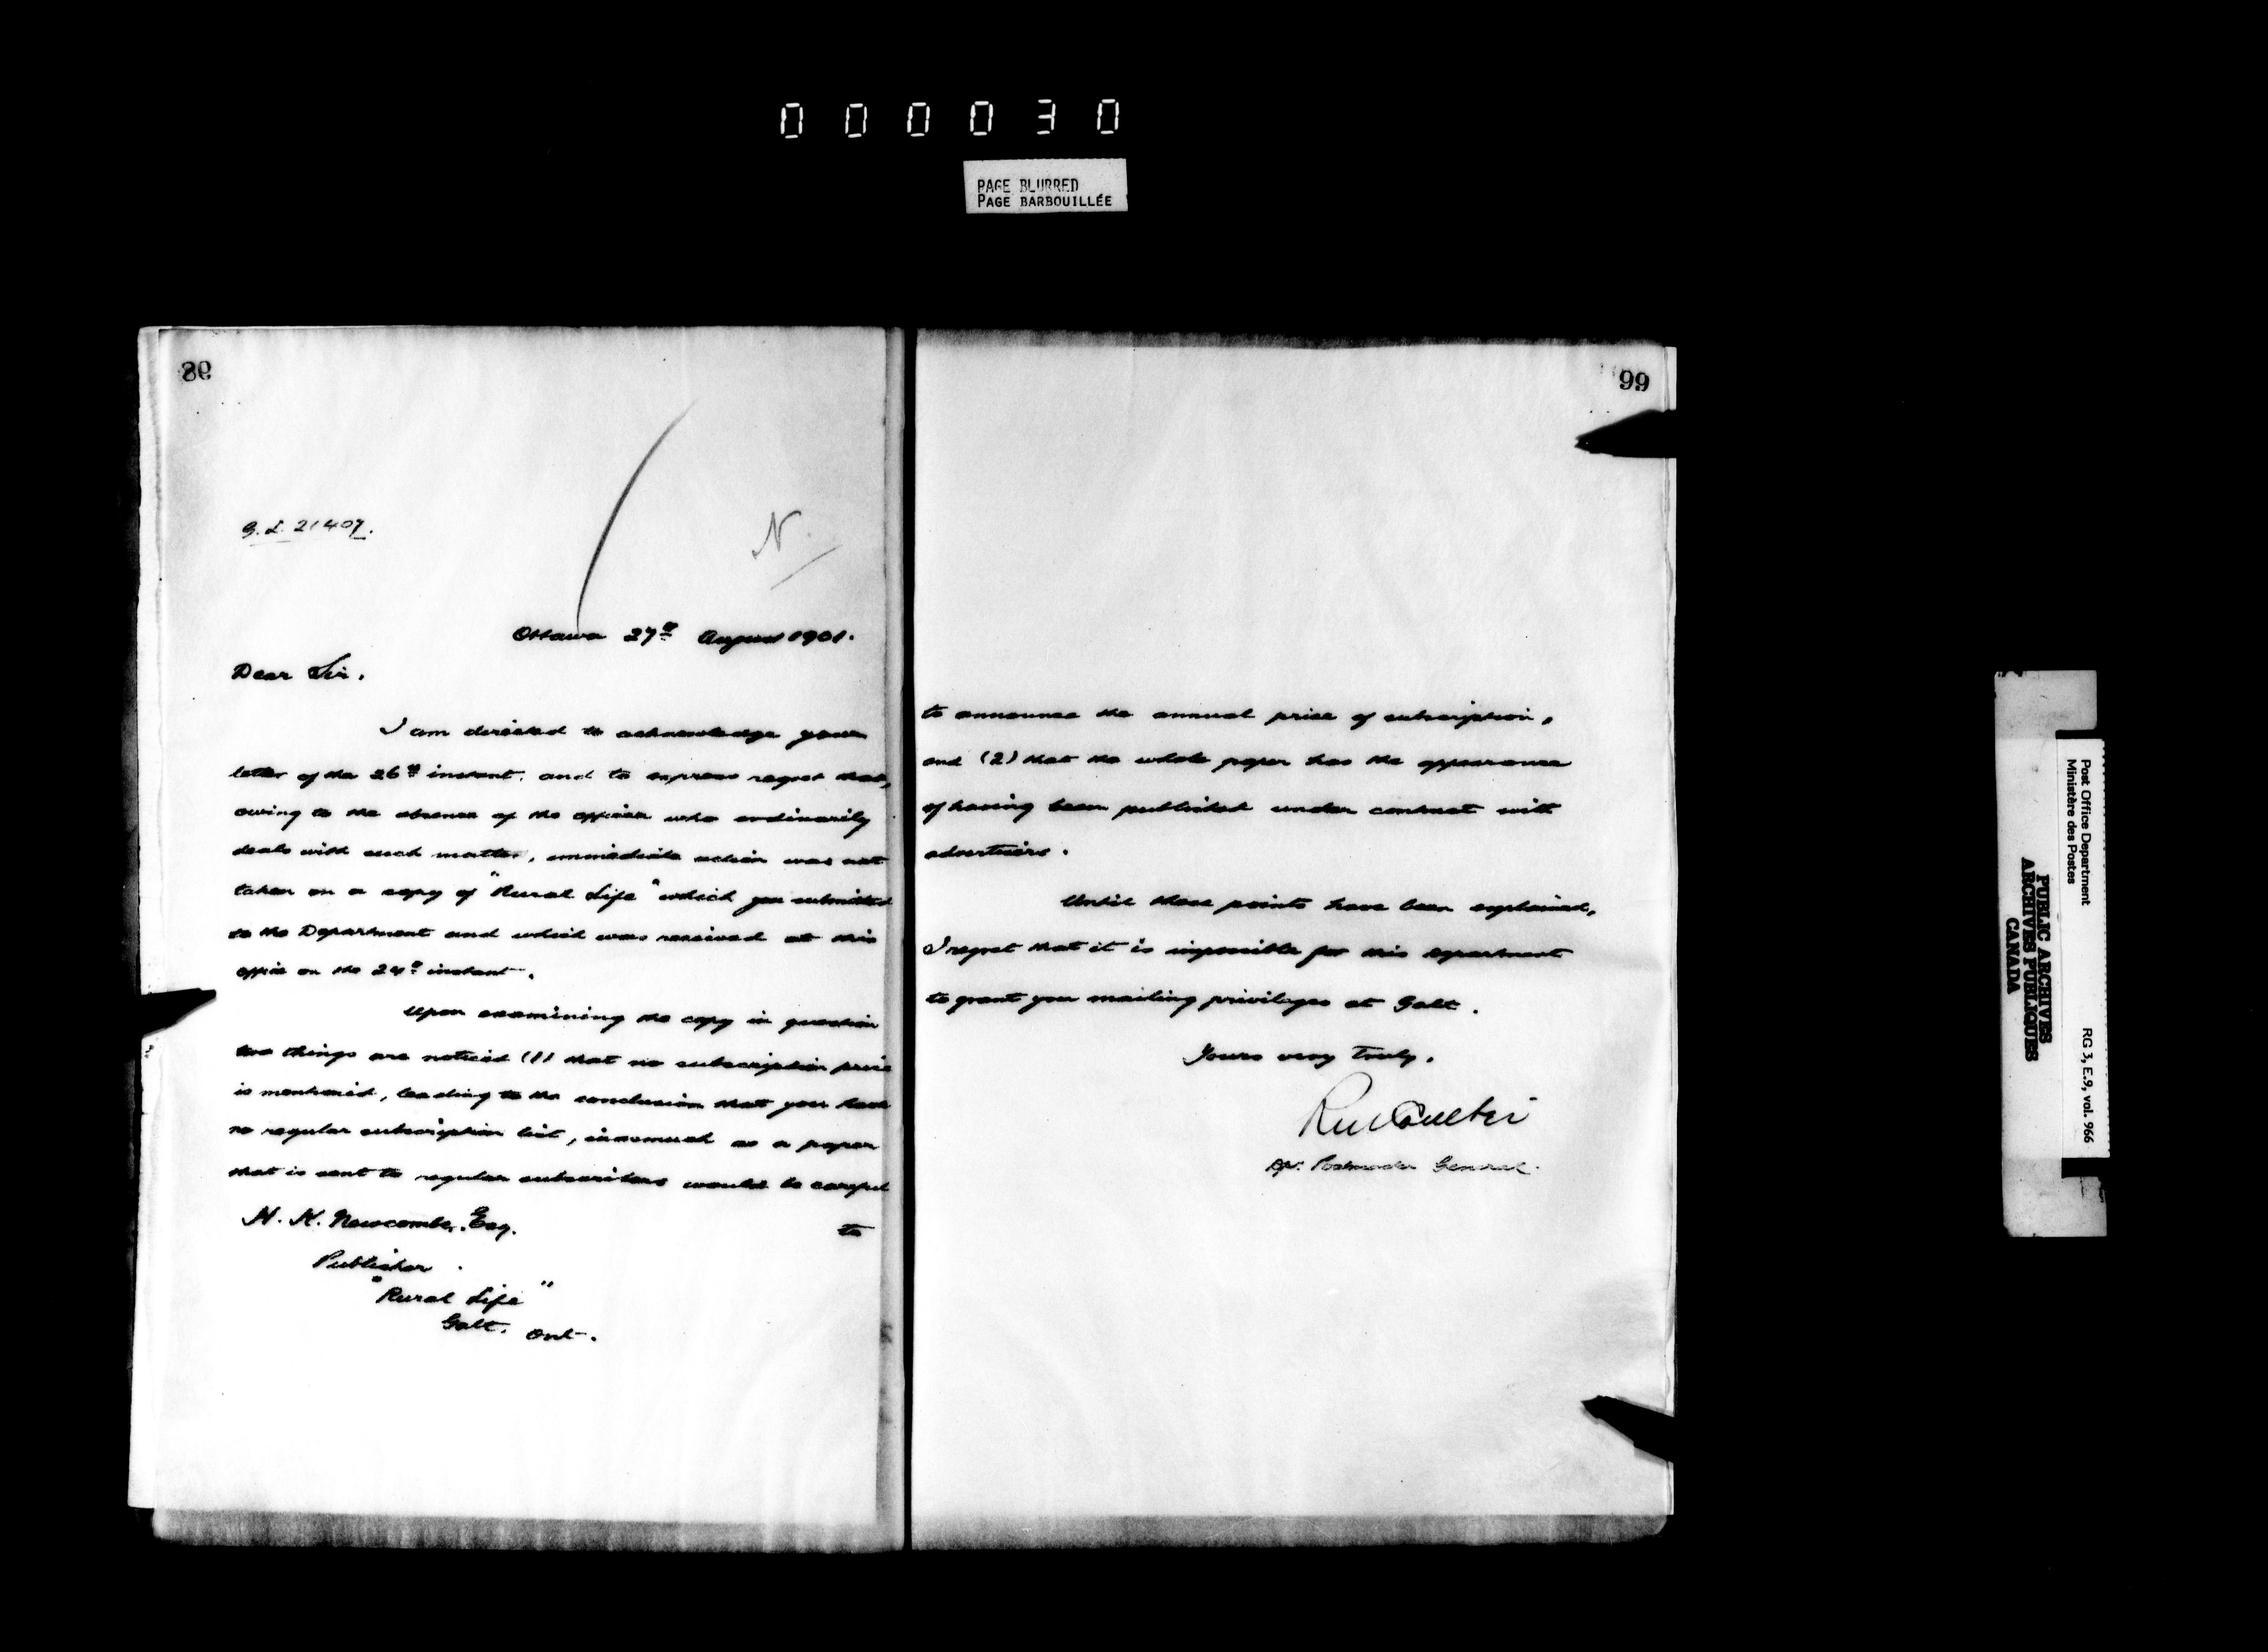 000030
PAGE BLURRED
PAGE BARBOUILLÉE
98
G.L. 21407.
N.
Ottawa 27th August 1901.
Dear Sir.
I am directed to acknowledge your
letter of the 26th instant. and to express regret that,
owing to the absence of the officer who ordinarily
deals with such matter, immediate action was not
taken on a copy of "Rural Life" which you submitted
to the Department and which was received at this
office on the 24th instant.
Upon examining the copy in question
two things are noticed (1) that no subscription price
is mentioned, leading to the conclusion that you have
no regular subscription list, inasmuch as a paper
that is sent to regular subscribers would be careful
to
Newcombe, Esq.
Publisher
"Rural Life"
Galt, Ont.
99
to announce the annual price of subscription,
and (2) that the whole paper has the appearance
of having been published under contract with
advertisers.
Until these points have been explained,
I regret that it is impossible for this department
to grant you mailing privileges at Galt.
Yours very truly,
RM Coulter
Dy. Postmaster General.
Post Office Department
Ministère des Postes
RG 3, E.9, vol. 966
PUBLIC ARCHIVES
ARCHIVES PUBLIQUES
CANADA